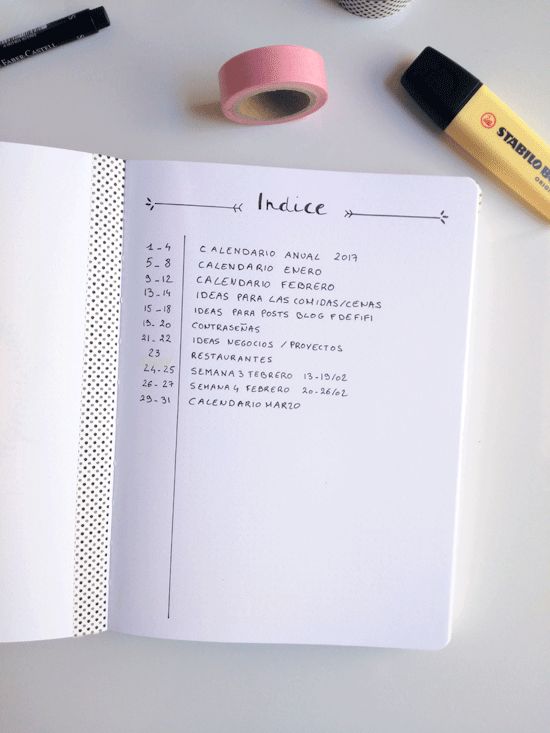 FABER-CASTELL
STABILO BO
ORIGI
Indice
1-4 CALENDARIO ANUAL 2017
5-8 CALENDARIO ENERO
9-12 CALENDARIO FEBRERO
13-14 IDEAS PARA LAS COMIDAS/CENAS
15-18 IDEAS PARA POSTS BLOG FDEFIFI
19-20 CONTRASEÑAS
21-22 IDEAS NEGOCIOS / PROYECTOS
23 RESTAURANTES
24-25 SEMANA 3 FEBRERO 13-19/02
26-27 SEMANA 4 FEBRERO 20-26/02
29-31 CALENDARIO MARZO